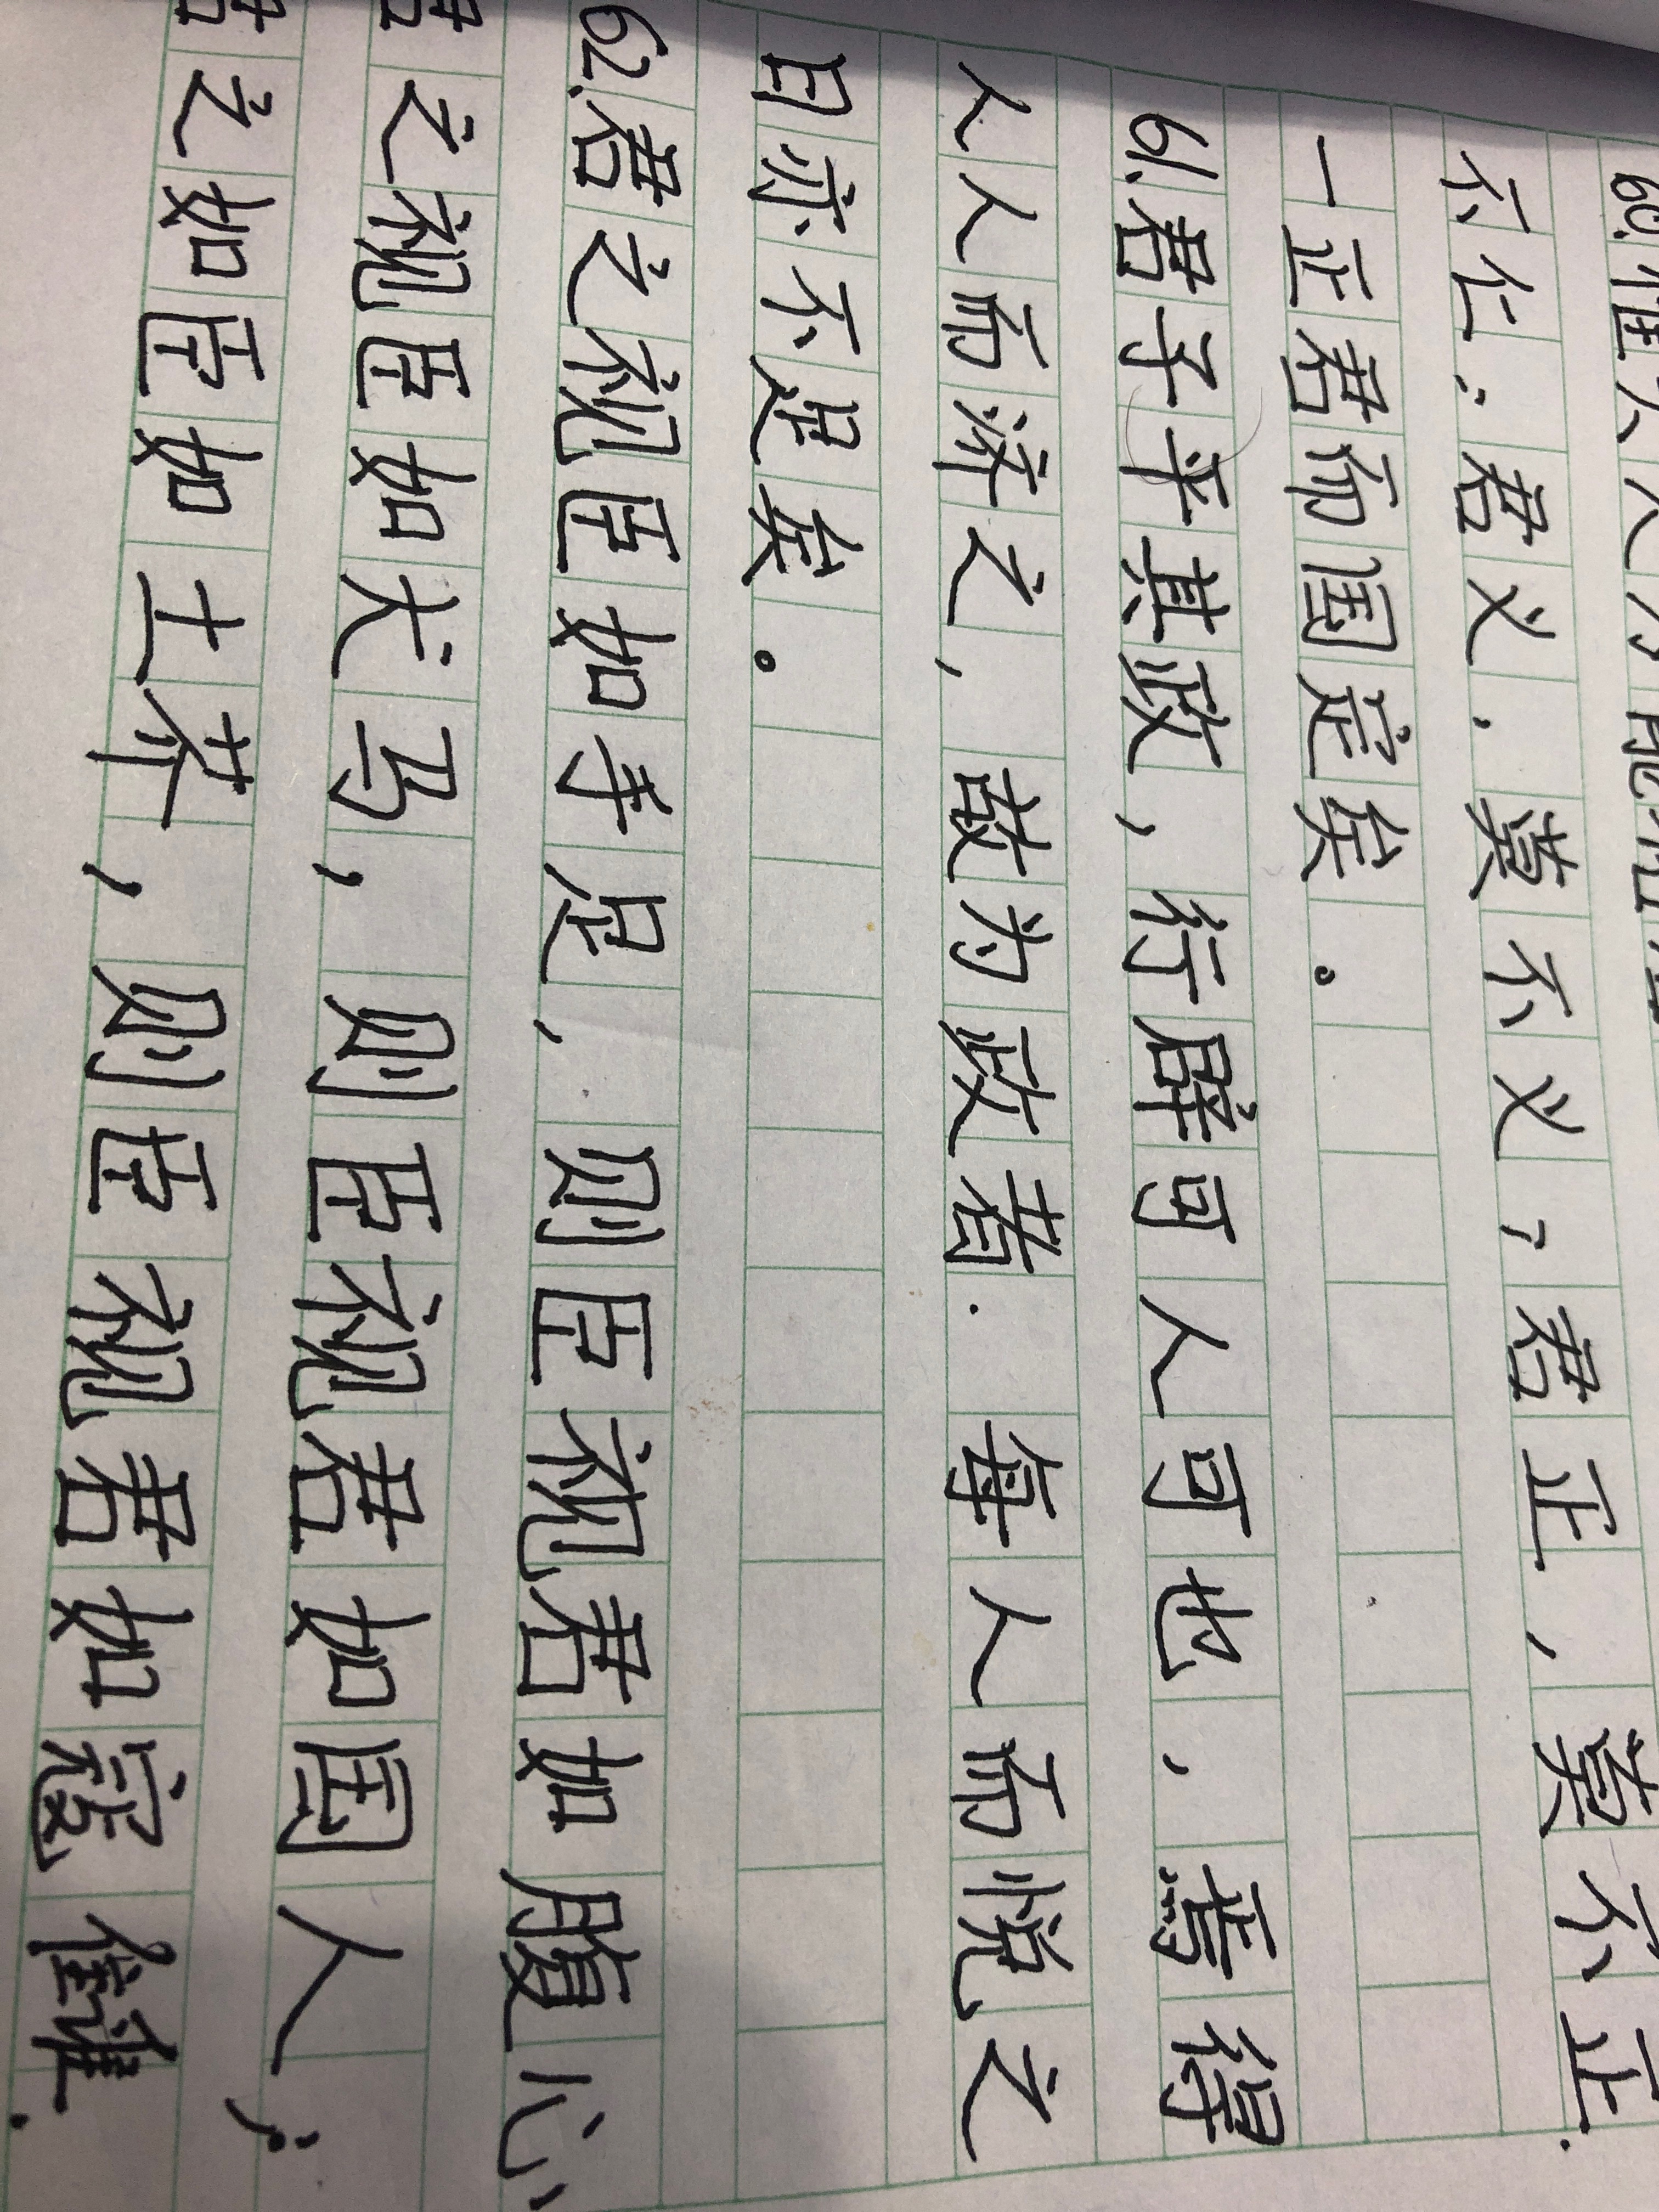 60.惟大人为能格
不仁;君义,莫不义;君正,莫不正.
一正君而国定矣。
61.君子平其政,行辟可人可也,焉得
人人而济之,故为政者.每人而悦之
日亦不足矣。
62.君之视臣如手足,则臣视君如腹心,
君之视臣如犬马,则臣视君如国人;
君之如臣如土芥,则臣视君如寇雠.